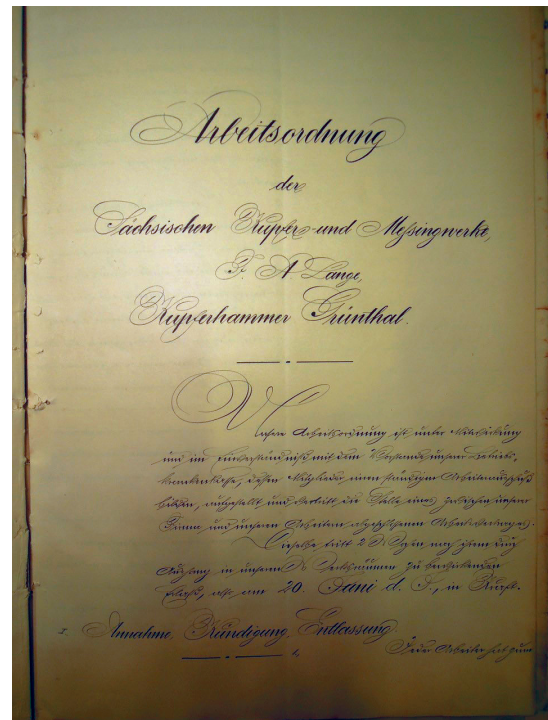 Arbeitsordnung
der
Sächsischen Kupfer- und Meßingwerke,
F. A. Lange,
Kupferhammer Grünthal.
Unsere Arbeitsordnung ist unter Mitwirkung
und im Einverständniß mit dem Vorstande unserer Betriebs-
krankenkasse, dessen Mitglieder einen ständigen Arbeiterausschuß
bilden, aufgestellt und vertritt die Stelle eines zwischen unserer
Firma und unseren Arbeitern abgeschlossenen Arbeitsvertrages.
Dieselbe tritt 2 Wochen nach ihrem
Aushang in unseren zu
Erlaß, also am 20. Juni d. J., in Kraft.
I. Annahme, Kündigung, Entlassung.
Jeder Arbeiter hat zum